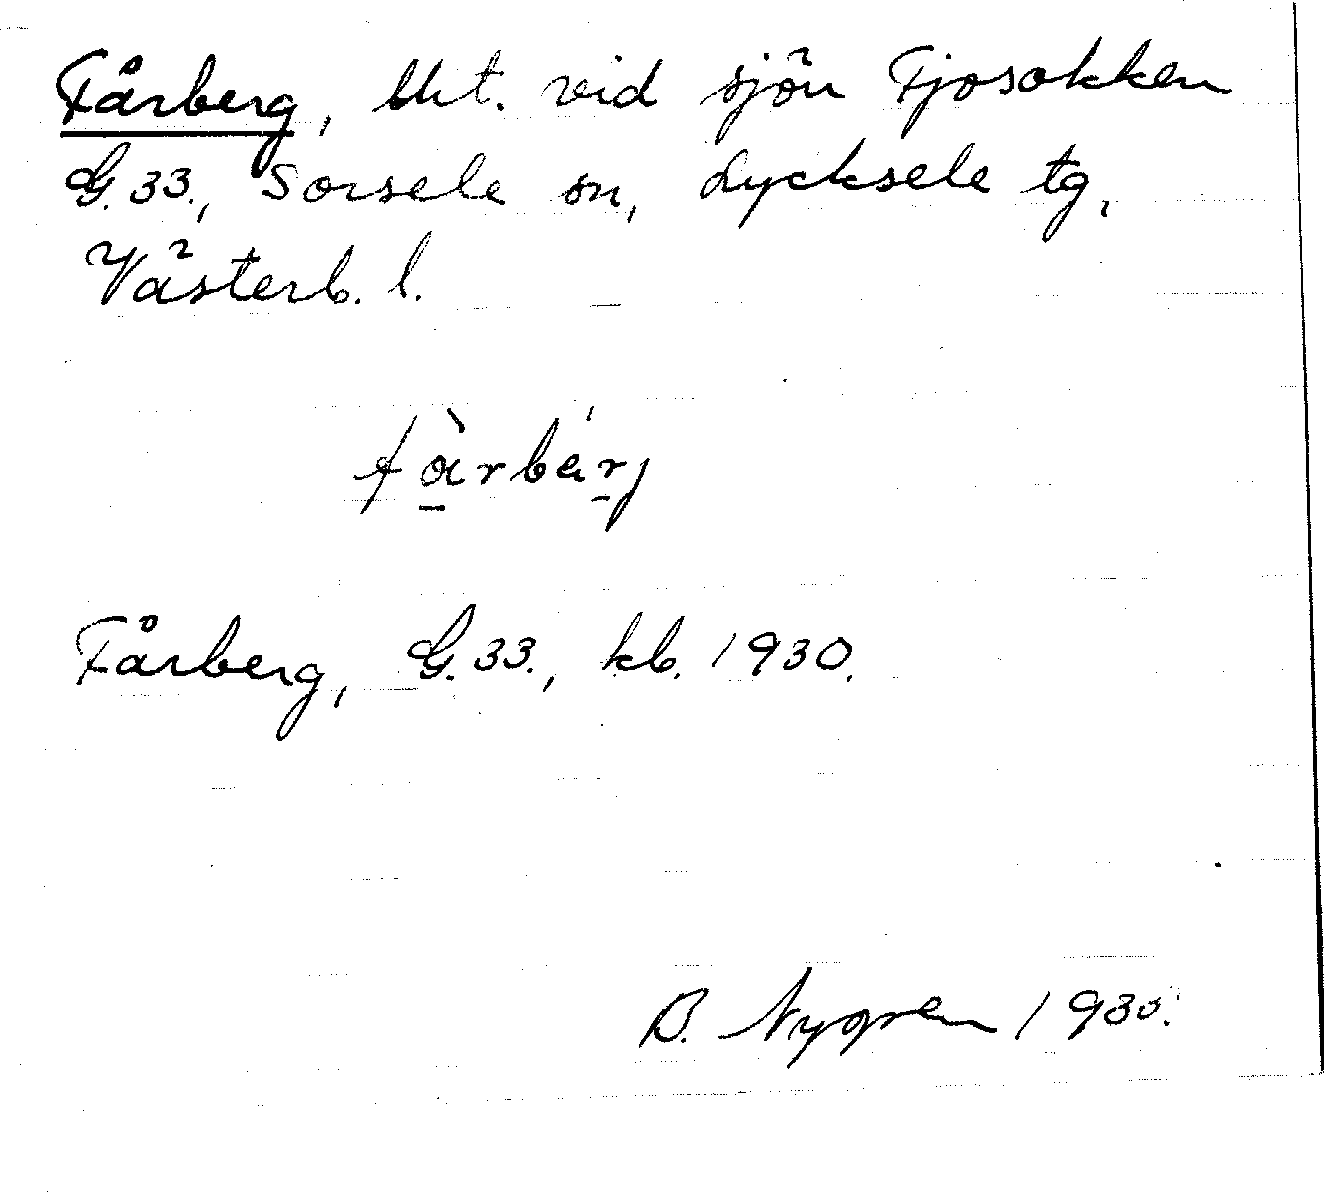 Fårberg, Utt. vid sjön Fjosokken
G. 33., Sorsele sn, Lycksele tg,
Västerb. l.
fàrbérj
Fårberg, G. 33., kb. 1930.
B. Nygren 1930.